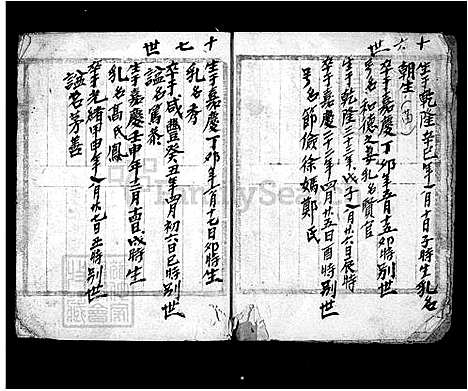 十六世
生于乾隆辛巳年一月十日子時生乳名
朝生
卒于嘉慶丁卯年五月十五卯時別世
号名和德之妻乳名賢官
生于乾隆三十三年戊子八月廿六日辰時
卒于嘉慶二十三年四月廿五日酉時別世
号名節儉徐媽鄭氏
十七世
生于嘉慶丁卯年二月十七日卯時生
乳名秀
卒于咸豐癸丑年四月初六日巳時別世
諡名篤恭
生于嘉慶壬申年二月十四日戌時生
乳名高氏鳳
卒于光緒甲申年八月廿七日丑時別世
諡名芳善
FamilySearch